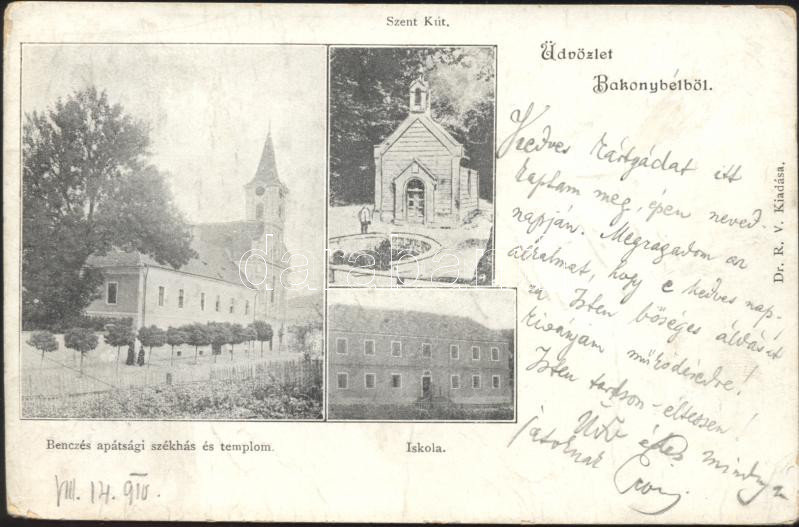 Szent Kút.
Üdvözlet
Bakonybélből.
Kedves
itt
kaptam meg, épen neved-
napján. Megragadom az
alkalmat, hogy e kedves nap-
ra Isten bőséges áldását
kivánjam működésedre!
Isten tartson - éltessen!
Üdv
Dr. R. V. Kiadása.
Benczés apátsági székhás és templom.
Iskola.
VIII. 14. 910.
darabanth.com